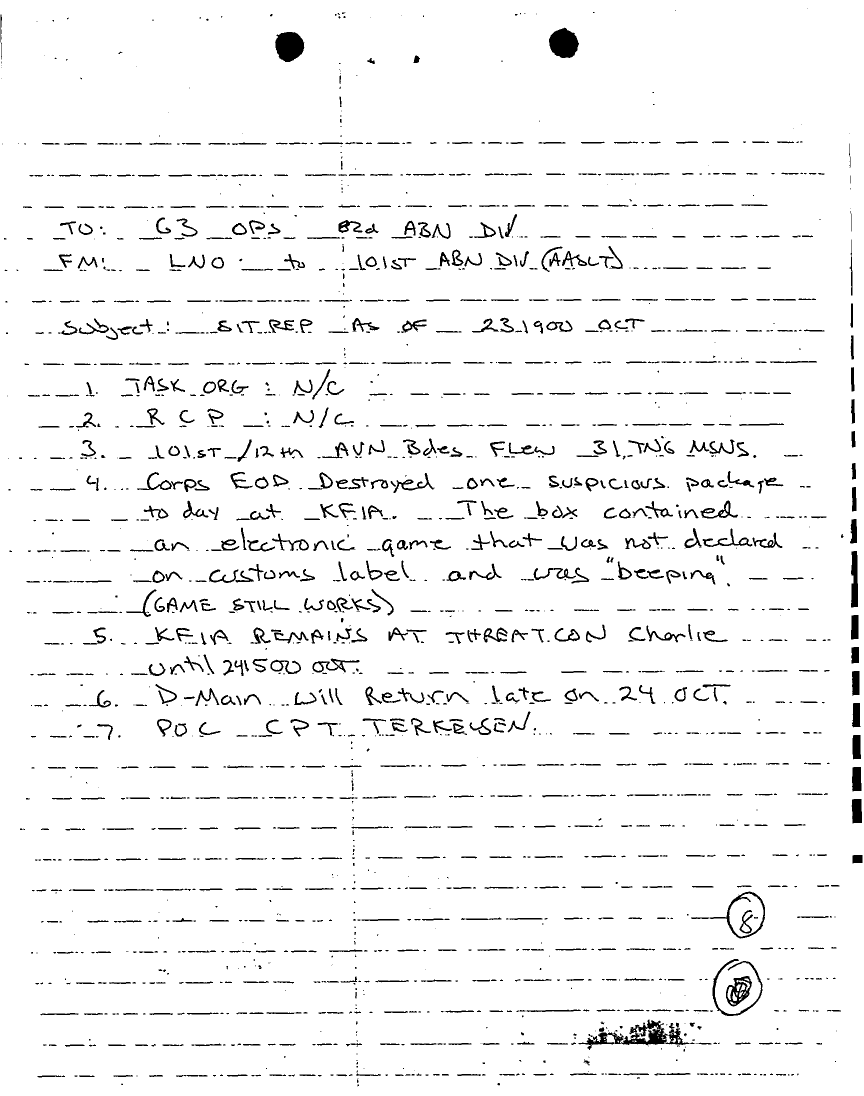 TO: G3 OPS 82d ABN DIV
FM: LNO to 101ST ABN DIV (AASLT)
Subject: SITREP AS OF 231900 OCT
1. TASK ORG : N/C
2. R C P : N/C
3. 101ST/12th AVN Bdes FLEW 31 TNG MSNS.
4. Corps EOD Destroyed one suspicious package
to day at KFIA. The box contained
an electronic game that was not declared
on customs label and was "beeping".
(GAME STILL WORKS)
5. KFIA REMAINS AT THREATCON Charlie
until 241500 OCT.
6. D-Main will Return late on 24 OCT.
7. POC CPT TERKELSEN.
8